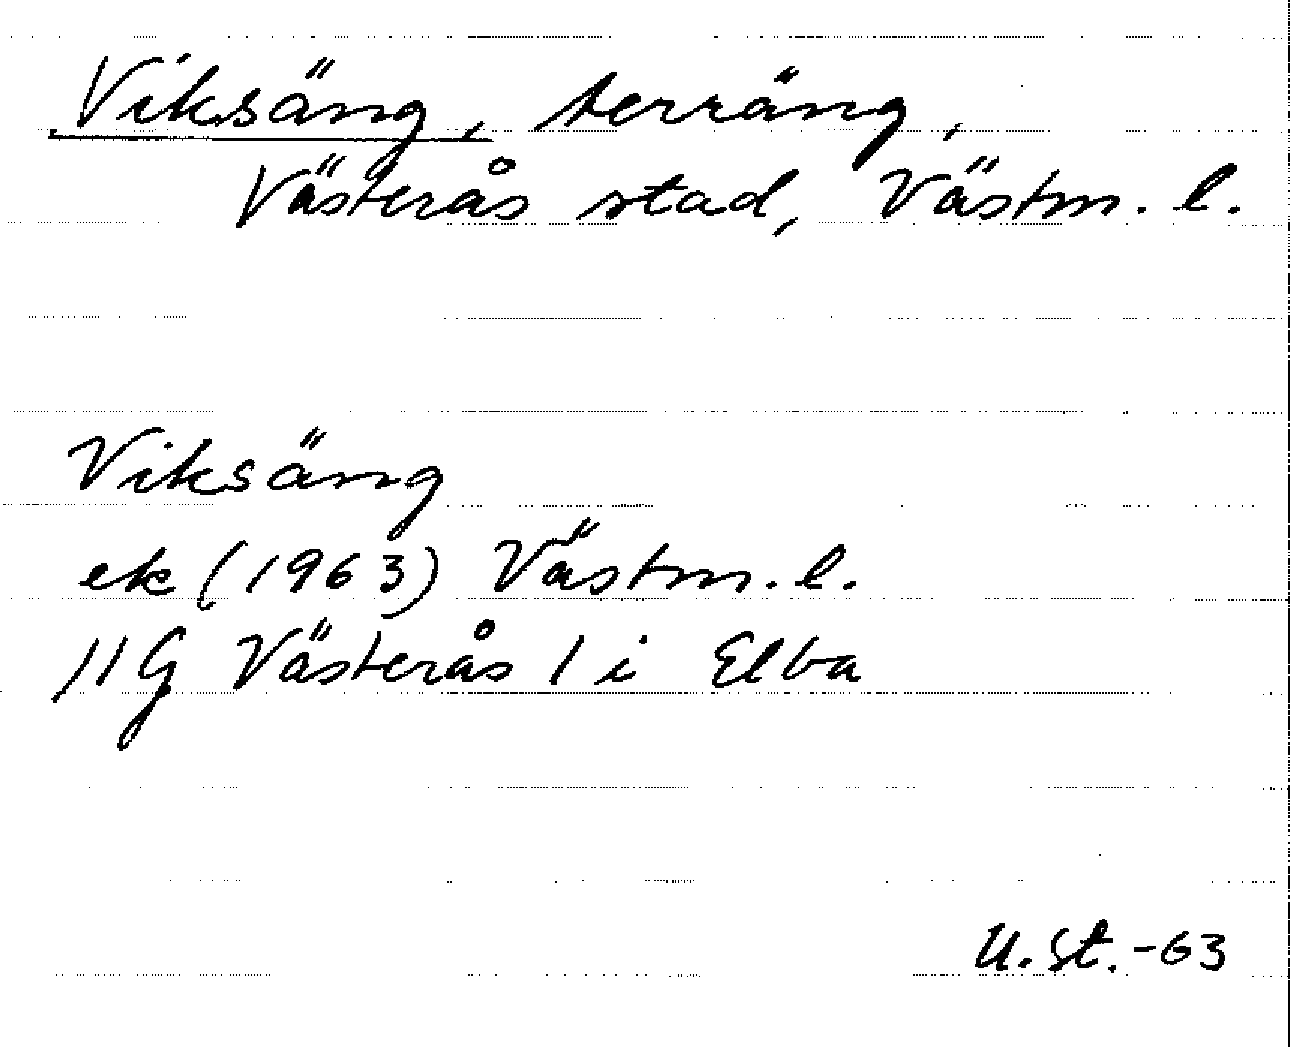 Viksäng, terräng,
Västerås stad, Västm. l.
Viksäng
ek (1963) Västm. l.
11G Västerås 1 i Elba
U.St.-63